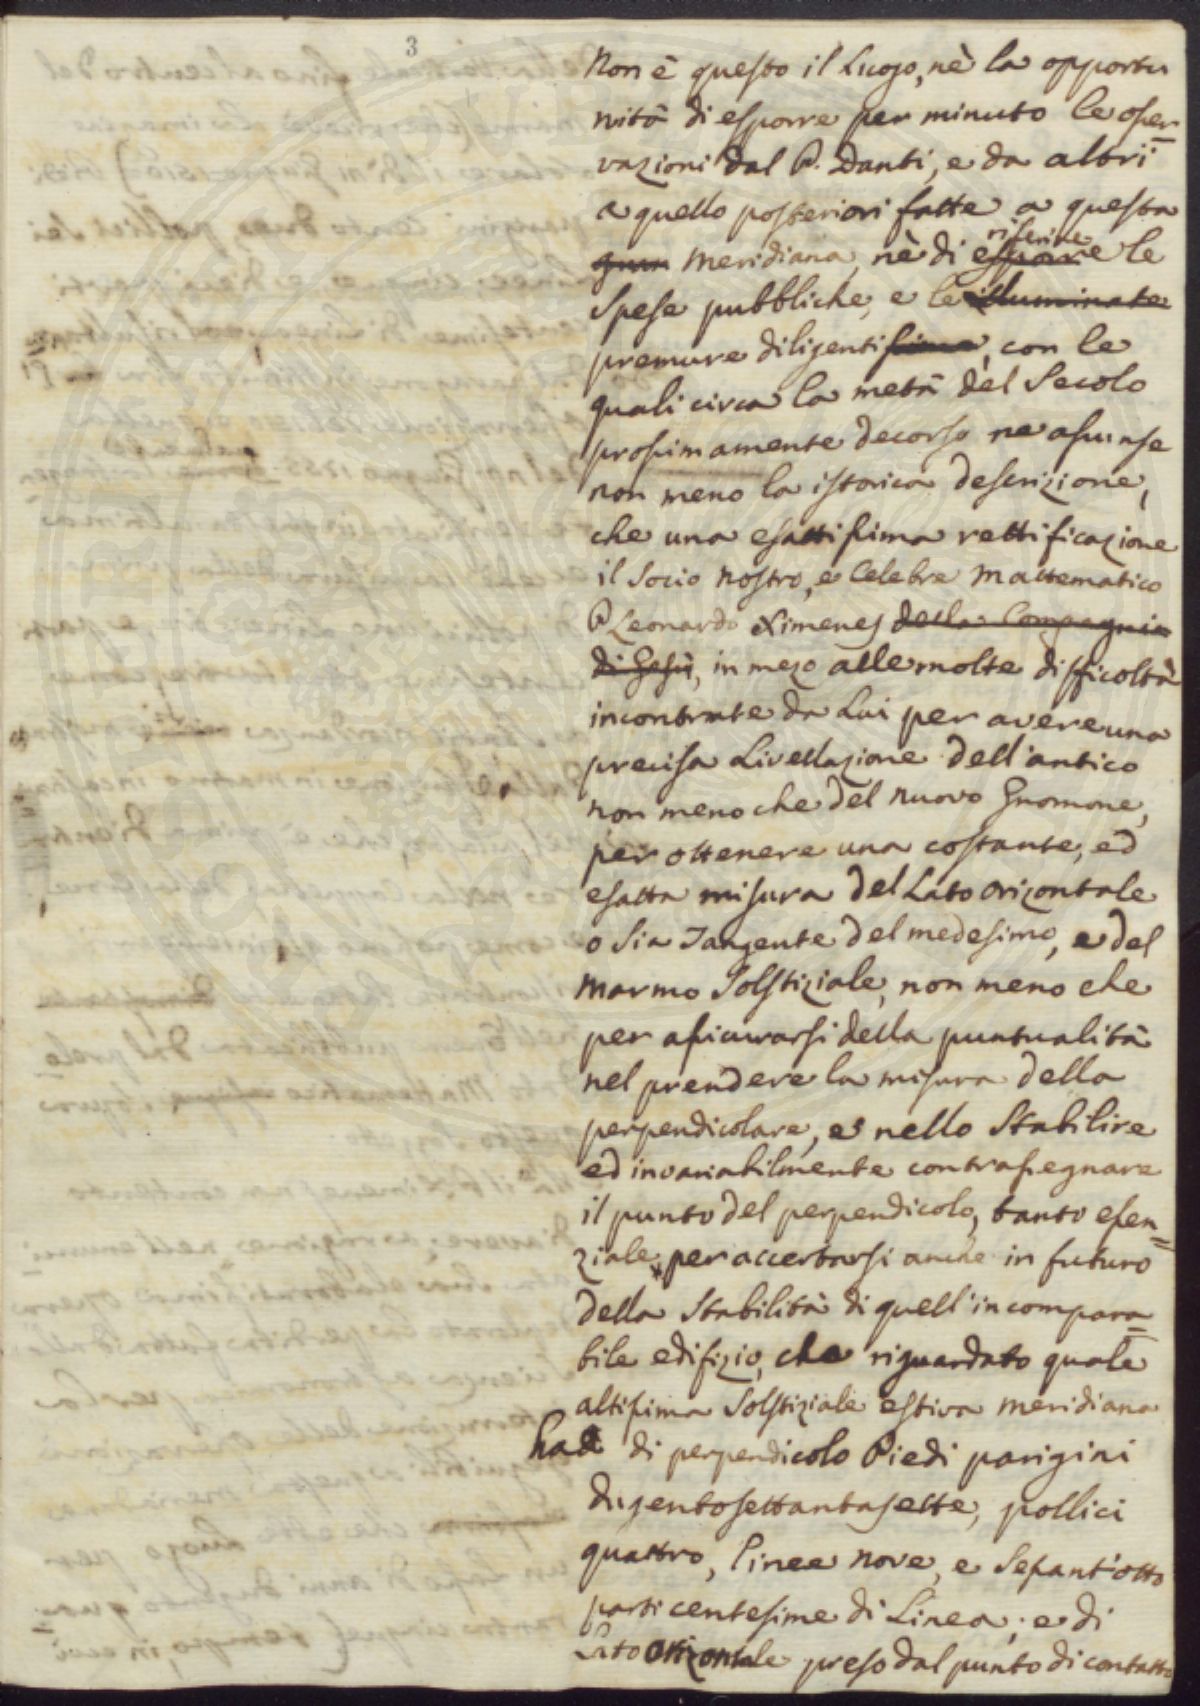 3
Non è questo il Luogo, nè la opportu
nità di esporre per minuto le osser=
vazioni dal P. Danti, e da altri
a quello posteriori fatte a questa
Meridiana, nè di esporre riferire le
Spese pubbliche, e le illuminate
premure diligentissime, con le
quali circa la metà del Secolo
prossimamente decorso ne assunse
non meno la istorica descrizione,
che una esattissima rettificazione
il Socio nostro, e Celebre Mattematico
P Leonardo Ximenes della Compagnia
di Gesù, in mezo alle molte difficoltà
incontrate da Lui per avere una
precisa Livellazione dell'antico
non meno che del nuovo Gnomone,
per ottenere una costante, ed
esatta misura del Lato Orizontale
o sia Tangente del medesimo, e del
Marmo Solstiziale, non meno che
per assicurarsi della puntualità
nel prendere la misura della
perpendicolare, e nello Stabilire
ed invariabilmente contrassegnare
il punto del perpendicolo, tanto essen=
ziale per accertarsi anche in futuro
della Stabilità di quell'incompara=
bile edifizio, che riguardato quale
altissima Solstiziale estiva meridiana
ha di perpendicolo Piedi parigini
dugentosettantasette, pollici
quattro, linee nove, e Sessant'otto
parti centesime di Linea, e di
Lato Orizontale preso dal punto di contatto